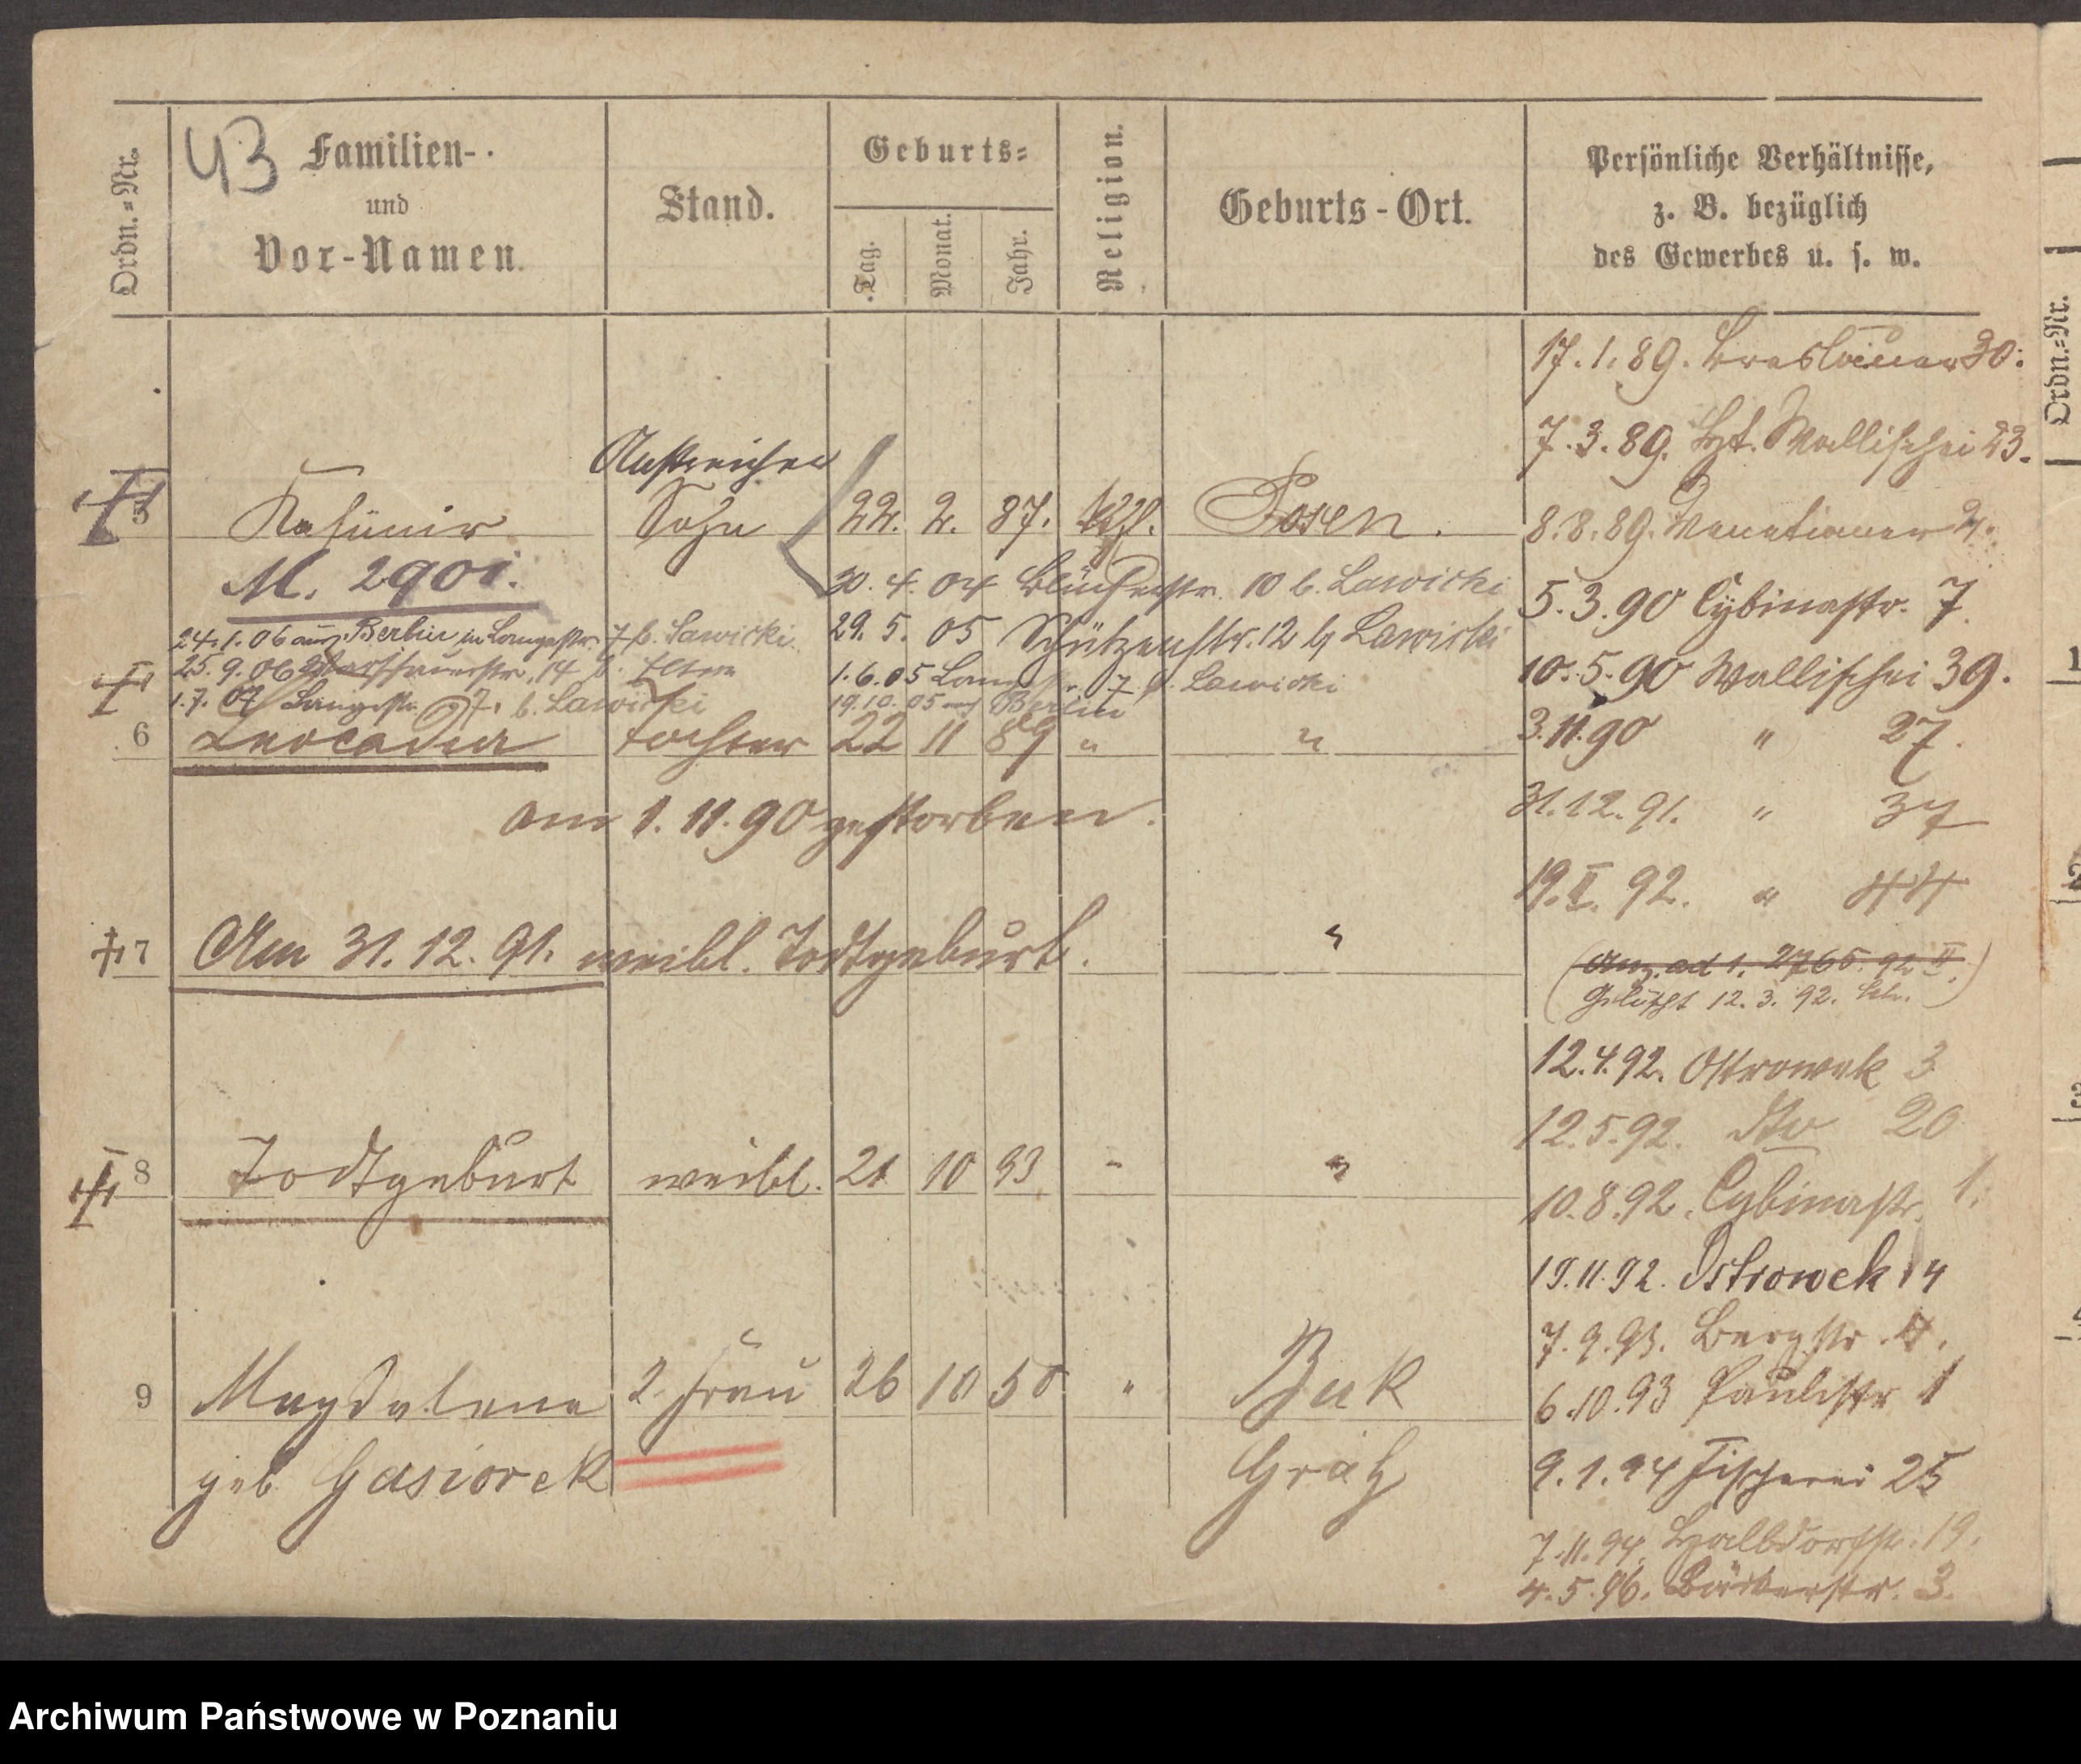 43
Ordn.-Nr.
Familien-
und
Vor-Namen.
Stand.
Geburts-
Tag.
Monat.
Jahr.
Religion.
Geburts-Ort.
Persönliche Verhältnisse,
z. B. bezüglich
des Gewerbes u. s. w.
Ordn.-Nr.
17.1.89. Breslauer 30.
7.3.89. Wallischei 23.
Anstreicher
5 Kasimir Sohn 22. 2. 87. Posen.
8.8.89. Venetianer
M. 2901.
30.4.04 Blücherstr. 10 b. Lawicki
5.3.90 Cybinastr. 7
24.1.06 aus Berlin in Langestr. 7 b. Lawicki
29.5.05 Schützenstr. 12 b. Lawicki
25.9.06 14 b. Eltern
1.6.05 7 b. Lawicki
10.5.90 Wallischei 39.
1.7.07 Langestr. 7. b. Lawicki
19.10.05 nach Berlin
6 Leocadia Tochter 22 11 89 " "
3.11.90 " 27.
am 1.11.90 gestorben.
31.12.91. " 37
19.II.92. " 44
7 Am 31.12.91. weibl. Todtgeburt. "
(Anz. ad 1. 2765. 92 II.
Gelöscht 12.3.92.)
12.4.92. Ostrowek 3
12.5.92. dto 20
8 Todtgeburt weibl. 21 10 93 " "
10.8.92. Cybinastr. 1.
19.11.92. Ostrowek 14
7.9.93. Bergstr.
9 Magdalena 2. Frau 26 10 58 " Buk
6.10.93 Paulistr. 1
geb Gasiorek Grätz
9.1.94 Fischerei 25
7.11.94. Halbdorfstr. 19.
4.5.96. Bäckerstr. 3.
Archiwum Państwowe w Poznaniu